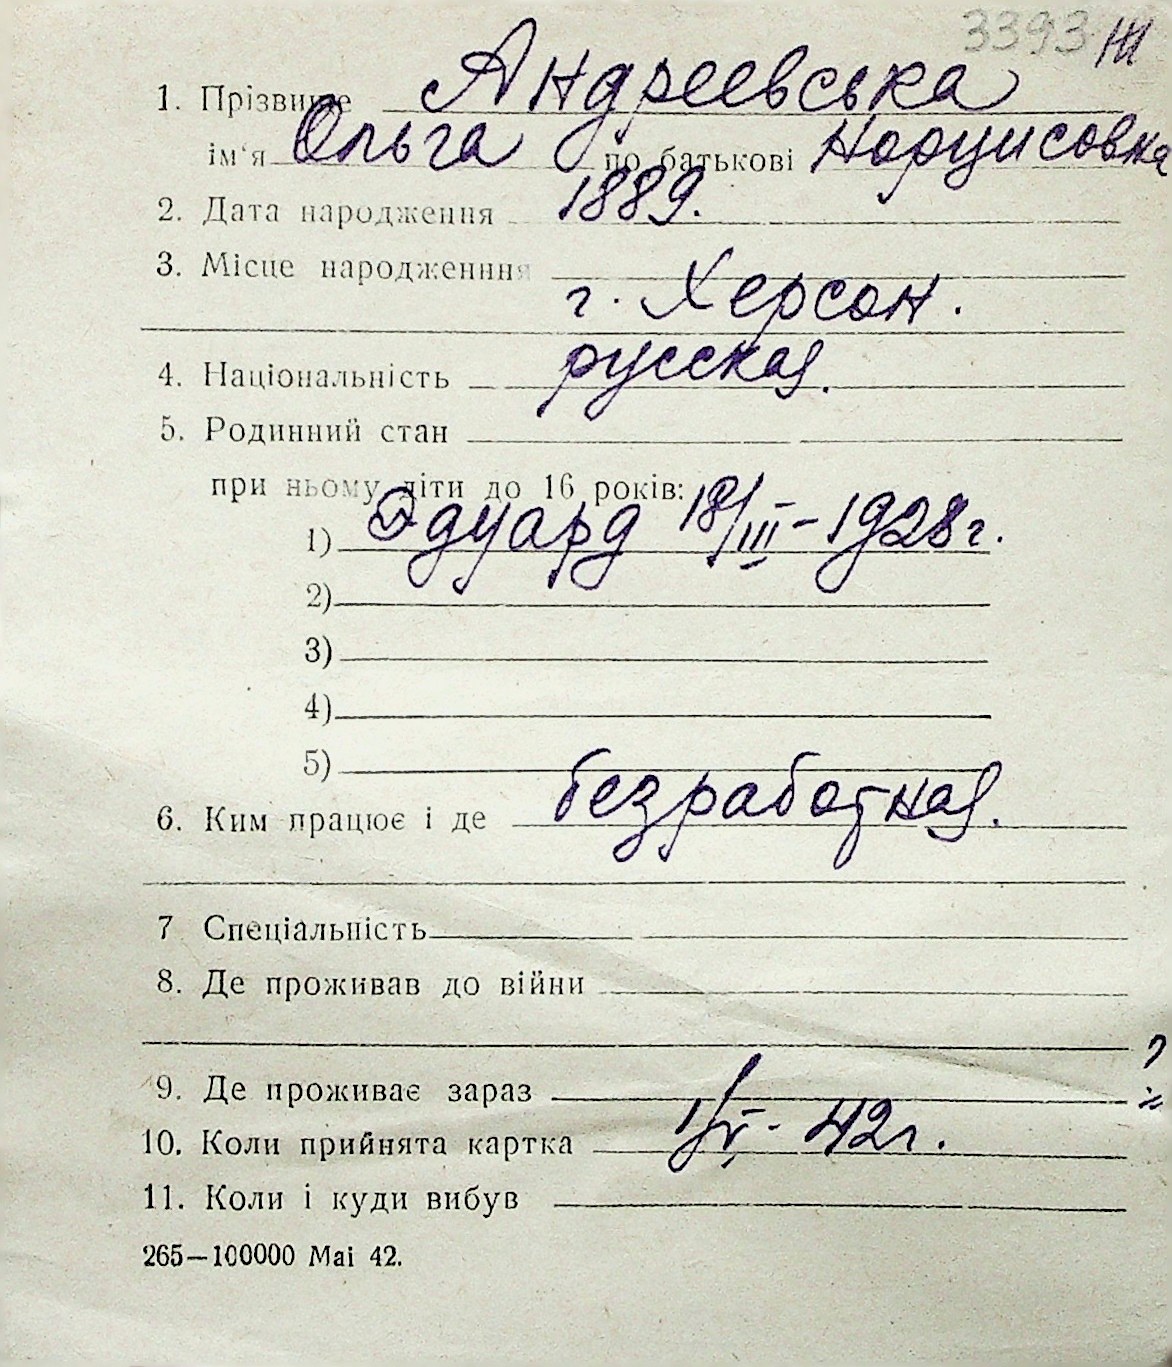 3393
1. Прізвище Андреевська
ім'я Ольга по батькові Нарцисовна
2. Дата народження 1889.
3. Місце народженння
г. Херсон.
4. Національність русская.
5. Родинний стан
при ньому діти до 16 років:
1) Эдуард 18/III-1928г.
2)
3)
4)
5)
6. Ким працює і де безработная.
7 Спеціальність
8. Де проживав до війни
?
9. Де проживає зараз
10. Коли прийнята картка 1/V-42г.
11. Коли і куди вибув
265—100000 Маі 42.